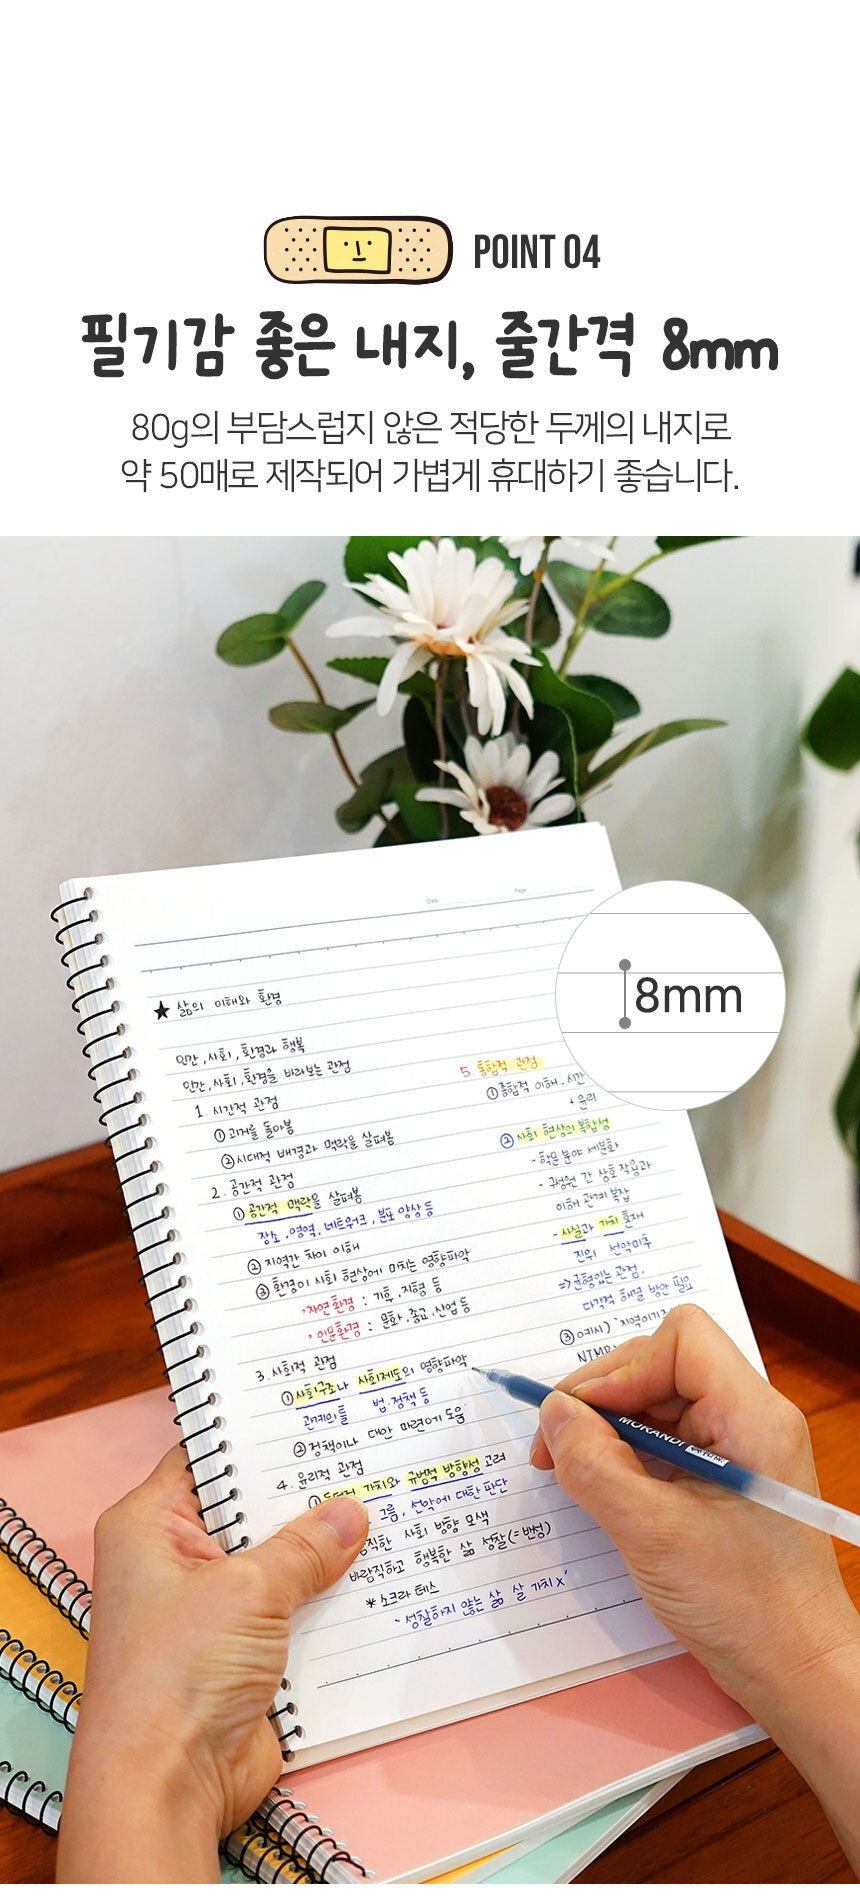 POINT 04
필기감 좋은 내지, 줄간격 8mm
80g의 부담스럽지 않은 적당한 두께의 내지로
약 50매로 제작되어 가볍게 휴대하기 좋습니다.
Date. Page.
8mm
★ 삶의 이해와 환경
인간, 사회, 환경과 행복
인간, 사회, 환경을 바라보는 관점
1 시간적 관점
① 과거를 돌아봄
② 시대적 배경과 맥락을 살펴봄
2. 공간적 관점
① 공간적 맥락을 살펴봄
장소, 영역, 네트워크, 분포 양상 등
② 지역간 차이 이해
③ 환경이 사회 현상에 미치는 영향파악
자연환경 : 기후, 지형 등
인문환경 : 문화, 종교, 산업 등
3. 사회적 관점
① 사회구조나 사회제도의 영향파악
관계의 틀 법.정책 등
② 정책이나 대안 마련에 도움
4. 윤리적 관점
① 가치와 규범적 방향성 고려
그름, 선악에 대한 판단
직한 사회 방향 모색
바람직하고 행복한 삶 성찰(=반성)
* 소크라테스
'성찰하지 않는 삶 살 가치 x'
5 통합적 관점
① 종합적 이해 - 시간
+ 윤리
② 사회 현상의 복합성
- 학문 분야 세분화
- 구성원 간 상호 작용과
이해 관계 복잡
- 사실과 가치 혼재
진위 선악미추
=> 균형있는 관점,
다각적 해결 방안 필요
③ 예시) '지역이기주
NIMB
MORANDI